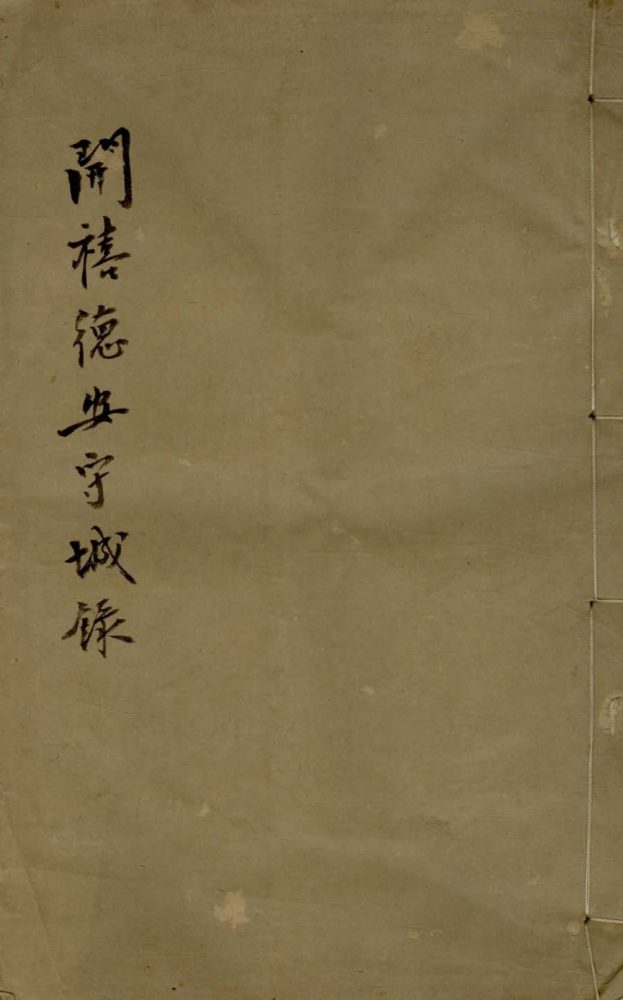 開禧德安守城錄